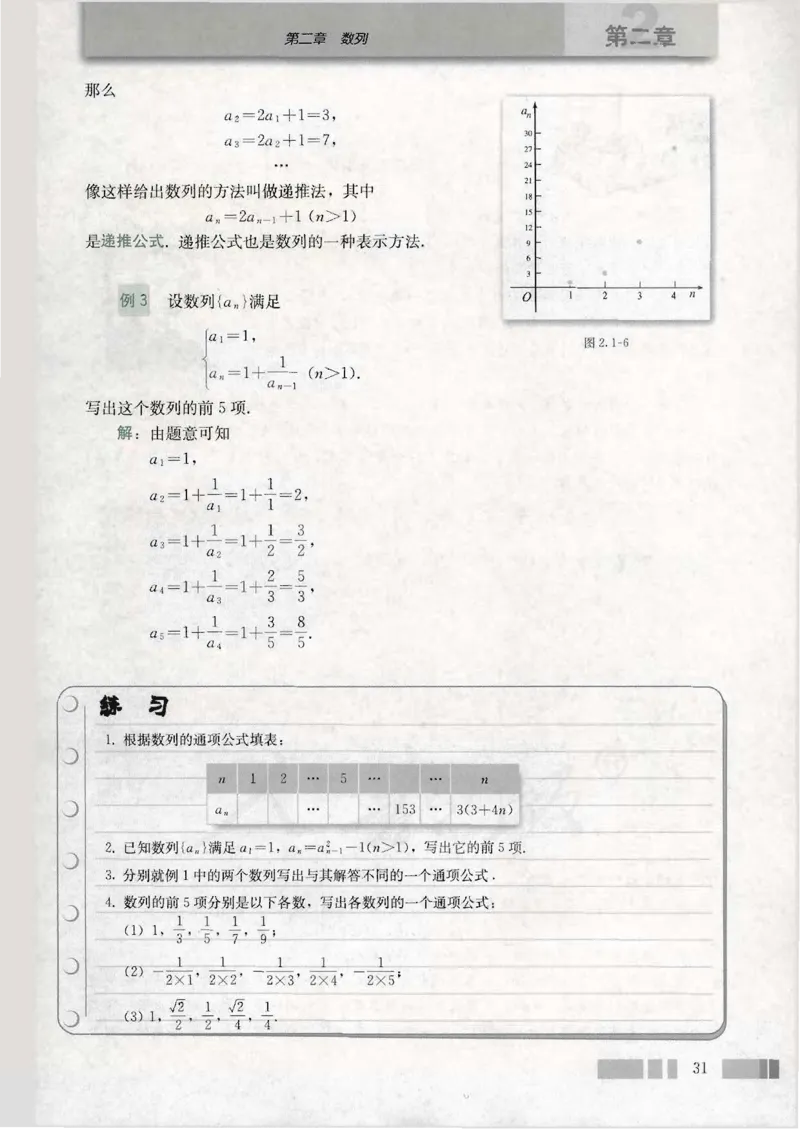 第二章 数列
第二章
那么
a₂=2a₁+1=3,
a₃=2a₂+1=7,
…
像这样给出数列的方法叫做递推法，其中
aₙ=2aₙ₋₁+1 (n>1)
是递推公式. 递推公式也是数列的一种表示方法.
aₙ
30
27
24
21
18
15
12
9
6
3
O 1 2 3 4 n
图 2.1-6
例 3 设数列{aₙ}满足
a₁=1,
aₙ=1+1/aₙ₋₁ (n>1).
写出这个数列的前 5 项.
解：由题意可知
a₁=1,
a₂=1+1/a₁=1+1/1=2,
a₃=1+1/a₂=1+1/2=3/2,
a₄=1+1/a₃=1+2/3=5/3,
a₅=1+1/a₄=1+3/5=8/5.
练 习
1. 根据数列的通项公式填表：
n 1 2 … 5 … … n
aₙ … … 153 … 3(3+4n)
2. 已知数列{aₙ}满足 a₁=1，aₙ=a²ₙ₋₁-1(n>1)，写出它的前 5 项.
3. 分别就例 1 中的两个数列写出与其解答不同的一个通项公式.
4. 数列的前 5 项分别是以下各数，写出各数列的一个通项公式：
(1) 1, 1/3, 1/5, 1/7, 1/9;
(2) -1/(2×1), 1/(2×2), -1/(2×3), 1/(2×4), -1/(2×5);
(3) 1, √2/2, 1/2, √2/4, 1/4.
31